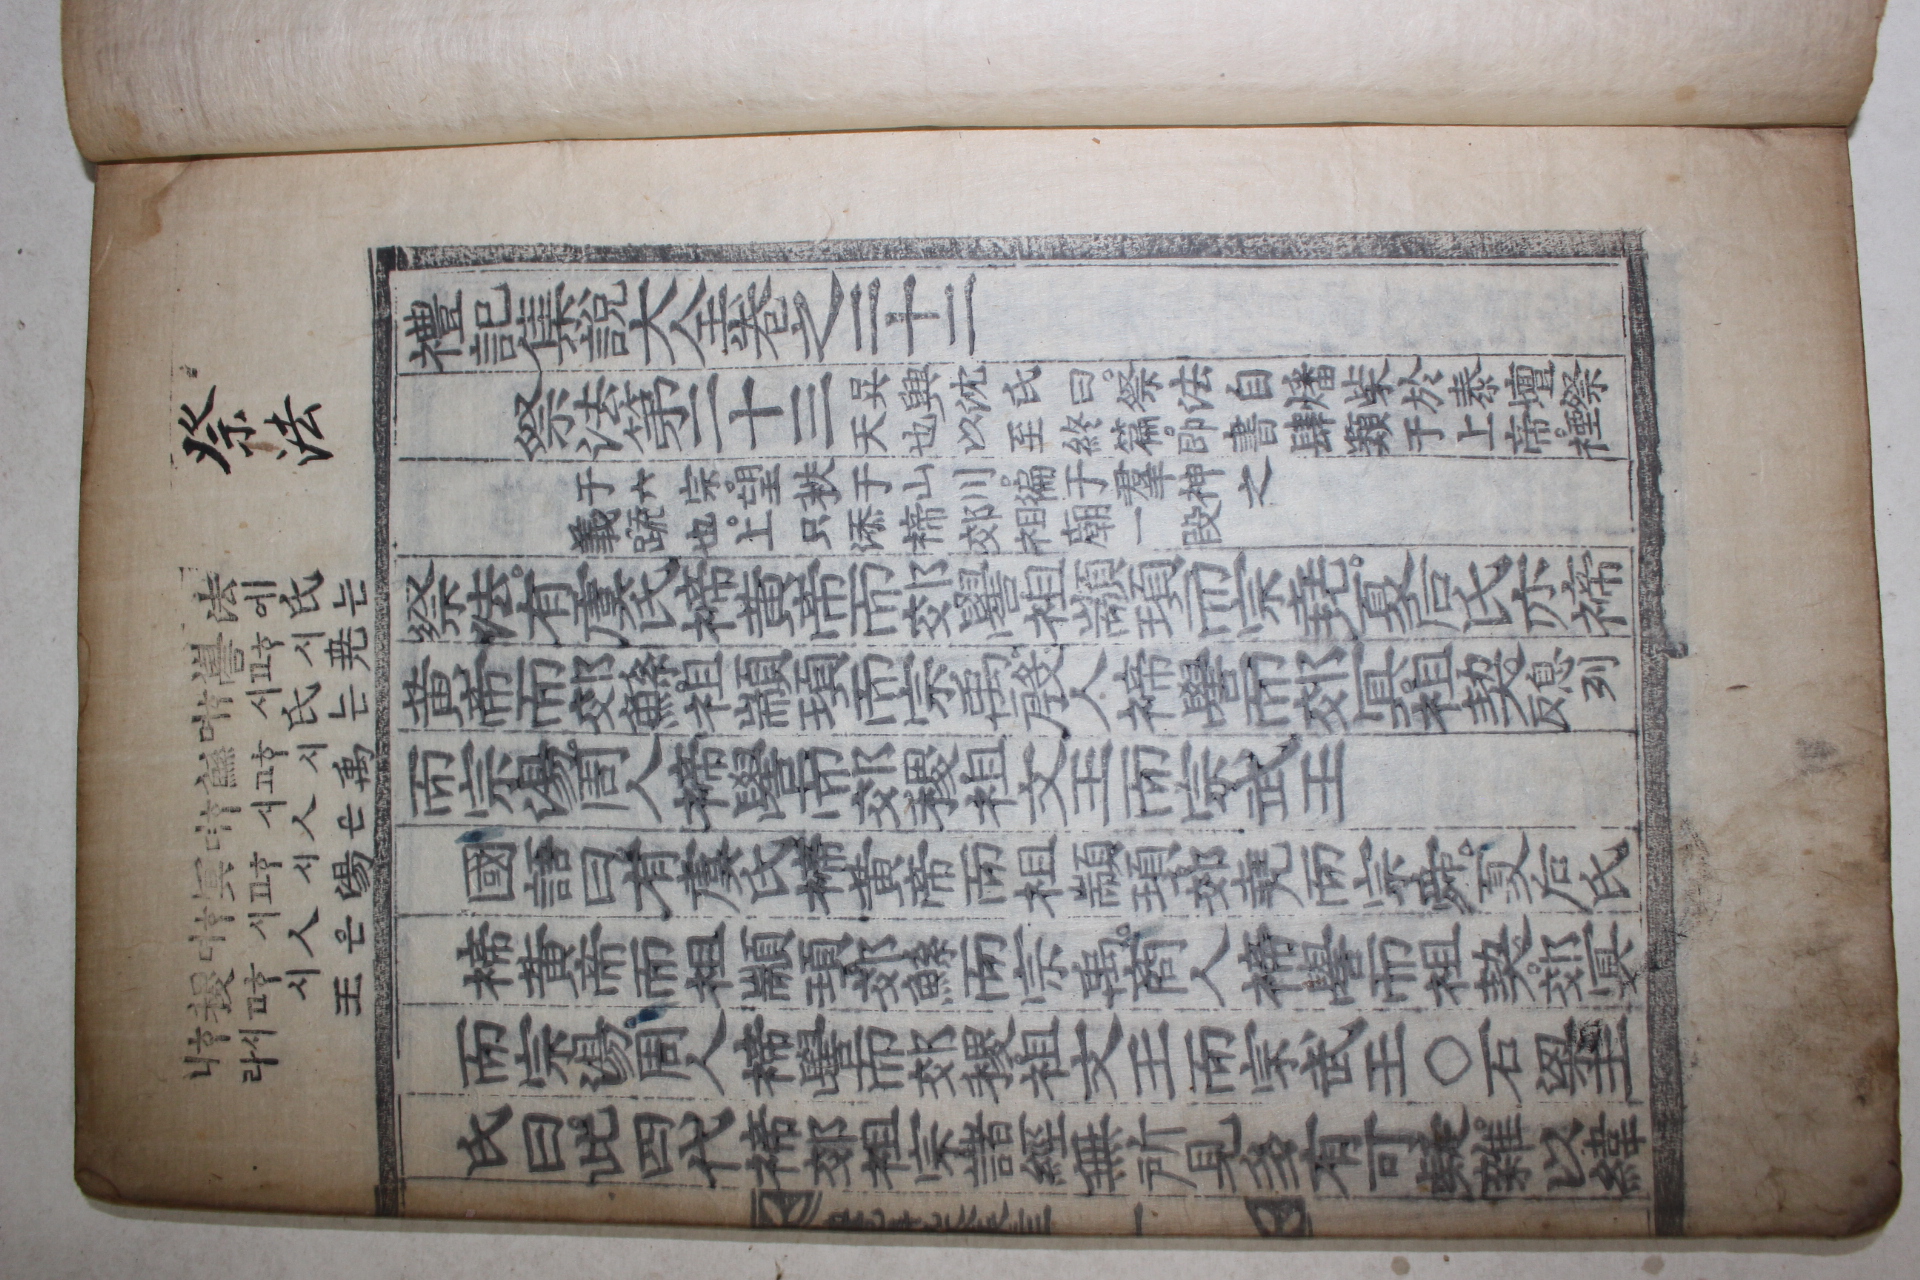 祭法
法에氏는
嚳고ᄒᆞ시堯
며ᄒᆞ시氏는
鯀고ᄒᆞ시禹
며ᄒᆞ시人은
冥고ᄒᆞ시湯
며ᄒᆞ시人은
稷고ᄒᆞ시王
ᄒᆞ시
니라
禮記集說大全卷之二十二
祭法第二十三
吳興沈氏曰祭法自燔柴於泰壇祭
天也以至終篇卽書肆類于上帝禋
于六宗望秩于山川徧于羣神之
義䟽也上只添禘郊祖廟一段
祭法有虞氏禘黃帝而郊嚳祖顓頊而宗堯夏后氏亦禘
黃帝而郊鯀祖顓頊而宗禹殷人禘嚳而郊冥祖契息列反
而宗湯周人禘嚳而郊稷祖文王而宗武王
國語曰有虞氏禘黃帝而祖顓頊郊堯而宗舜夏后氏
禘黃帝而祖顓頊郊鯀而宗禹商人禘嚳而祖契郊冥
而宗湯周人禘嚳而郊稷祖文王而宗武王○石梁王
氏曰此四代禘郊祖宗諸經無所見多有可疑雜以緯